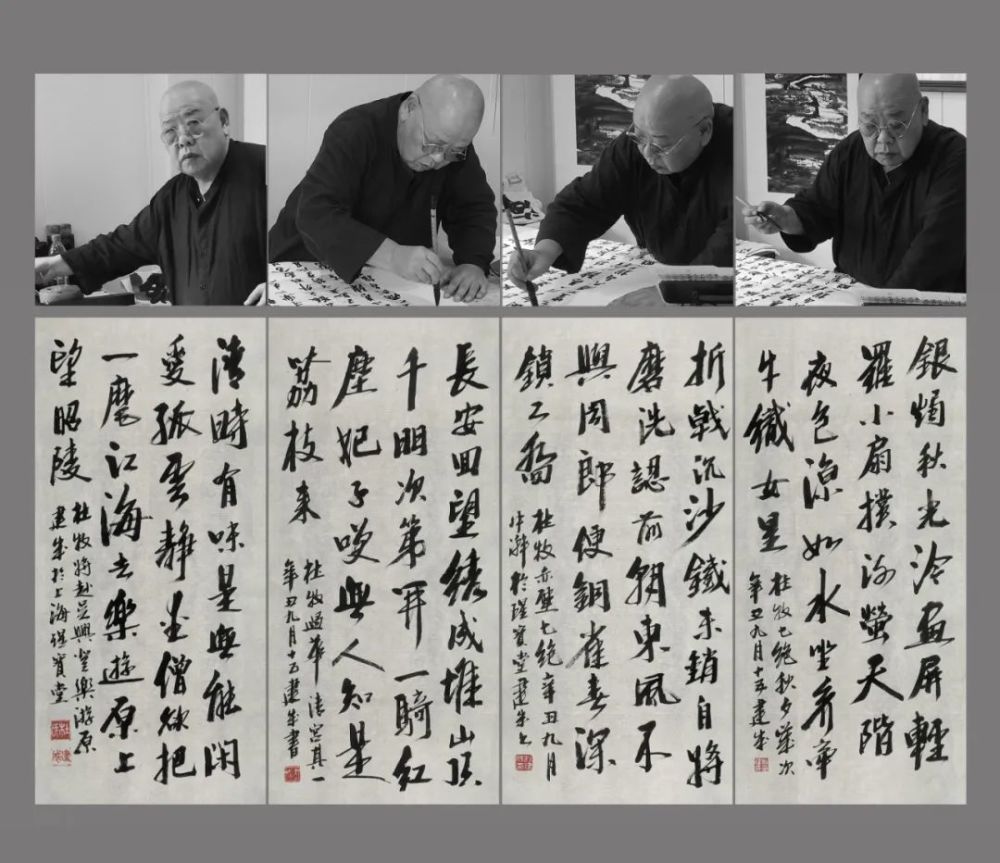 銀燭秋光冷畫屏輕
羅小扇撲流螢天階
夜色涼如水坐看牽
牛織女星
杜牧七絕秋夕歲次
辛丑九月十五建成
折戟沉沙鐵未銷自將
磨洗認前朝東風不
與周郎便銅雀春深
鎖二喬
杜牧赤壁七絕辛丑九月
中澣於瑾寶堂建成書
長安回望繡成堆山頂
千門次第開一騎紅
塵妃子笑無人知是
荔枝來
杜牧過華清宮其一
辛丑九月十五建成書
清時有味是無能閑
愛孤雲靜愛僧欲把
一麾江海去樂遊原上
望昭陵
杜牧將赴吳興登樂游原
建成於上海瑾寶堂